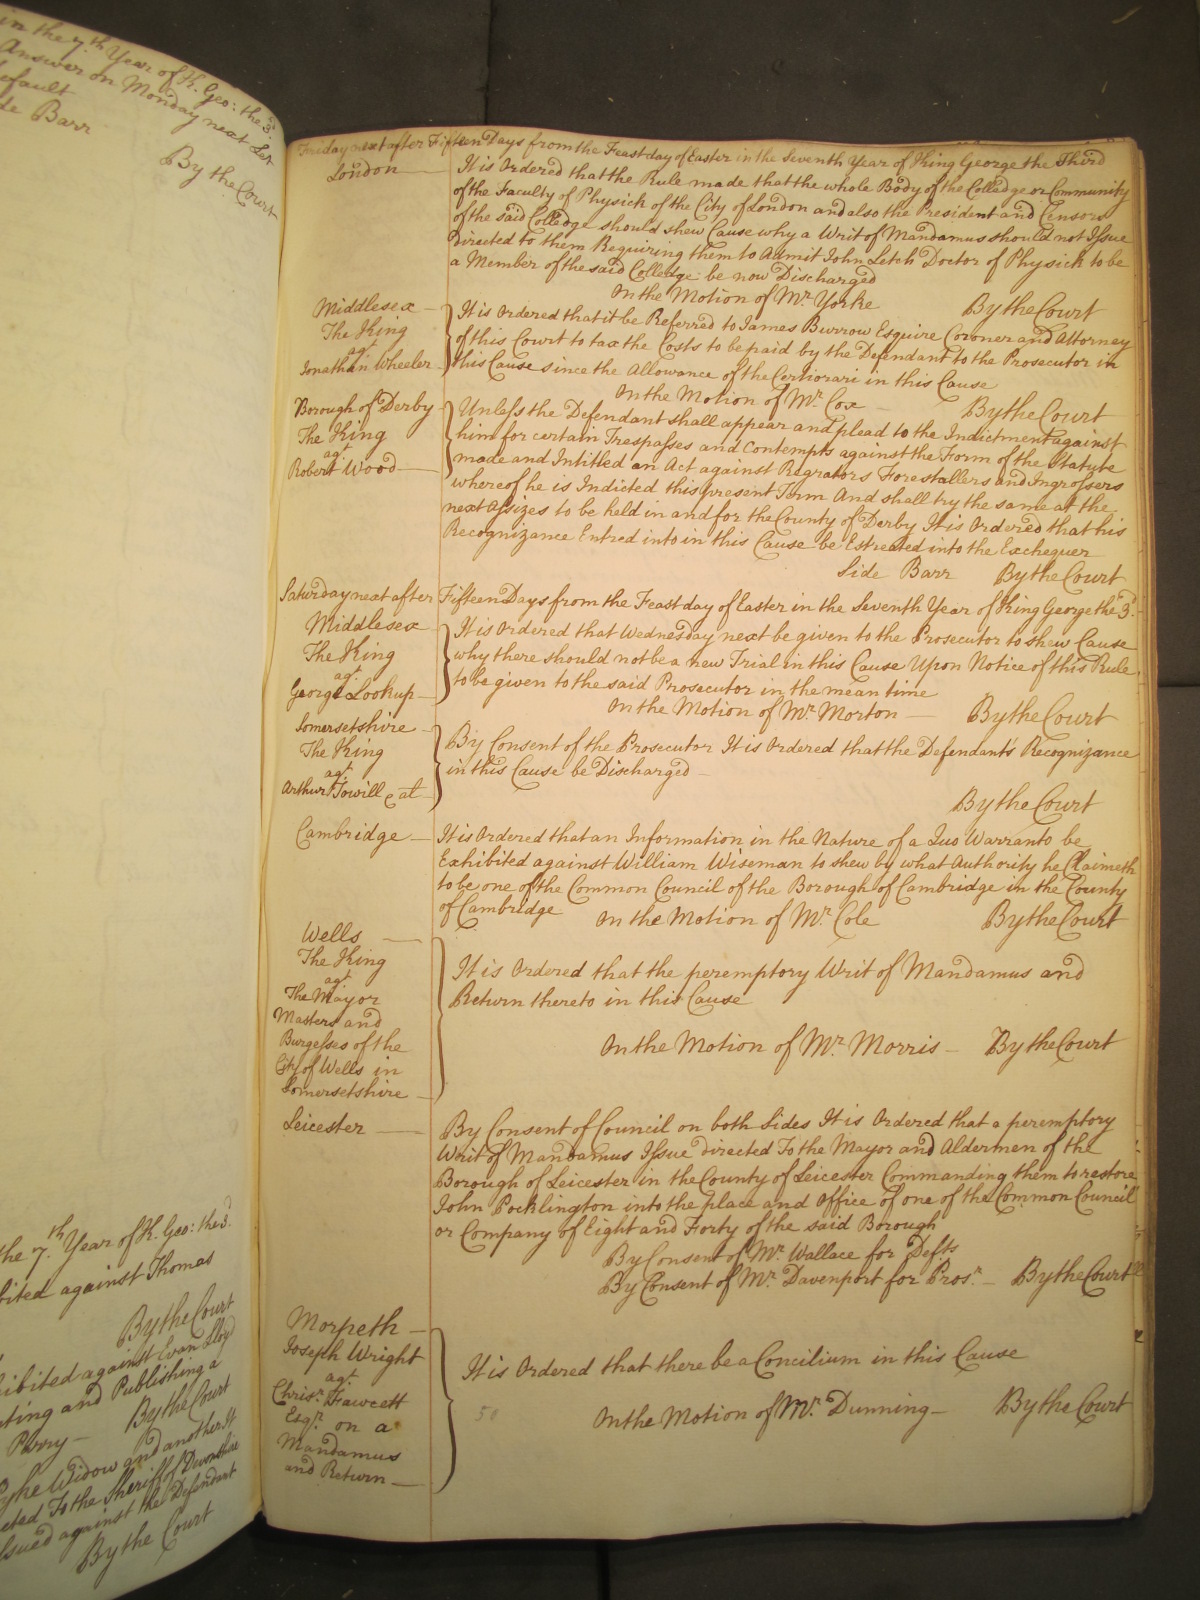 in the 7.th Year of K. Geo: the 3d.
Answer on Monday next Let
default
de Barr
By the Court
the 7.th Year of K. Geo: the 3d.
bited against Thomas
By the Court
hibited against Evan Lloyd
ting and Publishing a
Perry — By the Court
Widow and another It
cted To the Sheriff of Devonshire
Issued against the Defendant
By the Court
Friday next after Fifteen Days from the Feast day of Easter in the Seventh Year of King George the Third
London — It is Ordered that the Rule made that the whole Body of the Colledge or Community
of the Faculty of Physick of the City of London and also the President and Censors
of the said Colledge should shew Cause why a Writ of Mandamus should not Issue
directed to them Requiring them to Admit John Letch Doctor of Physick to be
a Member of the said Colledge be now Discharged
On the Motion of Mr. Yorke By the Court
Middlesex —
The King
agt.
Jonathan Wheeler
It is Ordered that it be Referred to James Burrow Esquire Coroner and Attorney
of this Court to tax the Costs to be paid by the Defendant to the Prosecutor in
this Cause since the Allowance of the Certiorari in this Cause
On the Motion of Mr. Cox — By the Court
Borough of Derby
The King
agt.
Robert Wood —
Unless the Defendant shall appear and plead to the Indictment against
him for certain Trespasses and Contempts against the Form of the Statute
made and Intitled an Act against Regrators Forestallers and Ingrossers
whereof he is Indicted this present Term And shall try the same at the
next Assizes to be held in and for the County of Derby It is Ordered that his
Recognizance Entred into in this Cause be Estreated into the Exchequer
Side Barr By the Court
Saturday next after Fifteen Days from the Feast day of Easter in the Seventh Year of King George the 3d.
Middlesex —
The King
agt.
George Lookup —
It is Ordered that Wednesday next be given to the Prosecutor to shew Cause
why there should not be a new Trial in this Cause Upon Notice of this Rule
to be given to the said Prosecutor in the mean time
On the Motion of Mr. Morton — By the Court
Somersetshire —
The King
agt.
Arthur Towill & al —
By Consent of the Prosecutor It is Ordered that the Defendant's Recognizance
in this Cause be Discharged —
By the Court
Cambridge — It is Ordered that an Information in the Nature of a Quo Warranto be
Exhibited against William Wiseman to shew by what Authority he Claimeth
to be one of the Common Council of the Borough of Cambridge in the County
of Cambridge On the Motion of Mr. Cole By the Court
Wells —
The King
agt.
The Mayor
Masters and
Burgesses of the
City of Wells in
Somersetshire —
It is Ordered that the peremptory Writ of Mandamus and
Return thereto in this Cause
On the Motion of Mr. Morris — By the Court
Leicester — By Consent of Council on both Sides It is Ordered that a peremptory
Writ of Mandamus Issue directed To the Mayor and Aldermen of the
Borough of Leicester in the County of Leicester Commanding them to restore
John Pocklington into the place and Office of one of the Common Council
or Company of Eight and Forty of the said Borough
By Consent of Mr. Wallace for Defts
By Consent of Mr. Davenport for Prosr. — By the Court
Morpeth —
Joseph Wright
agt.
Chrisr. Fawcett
Esqr. on a
Mandamus
and Return —
It is Ordered that there be a Concilium in this Cause
50
On the Motion of Mr. Dunning — By the Court